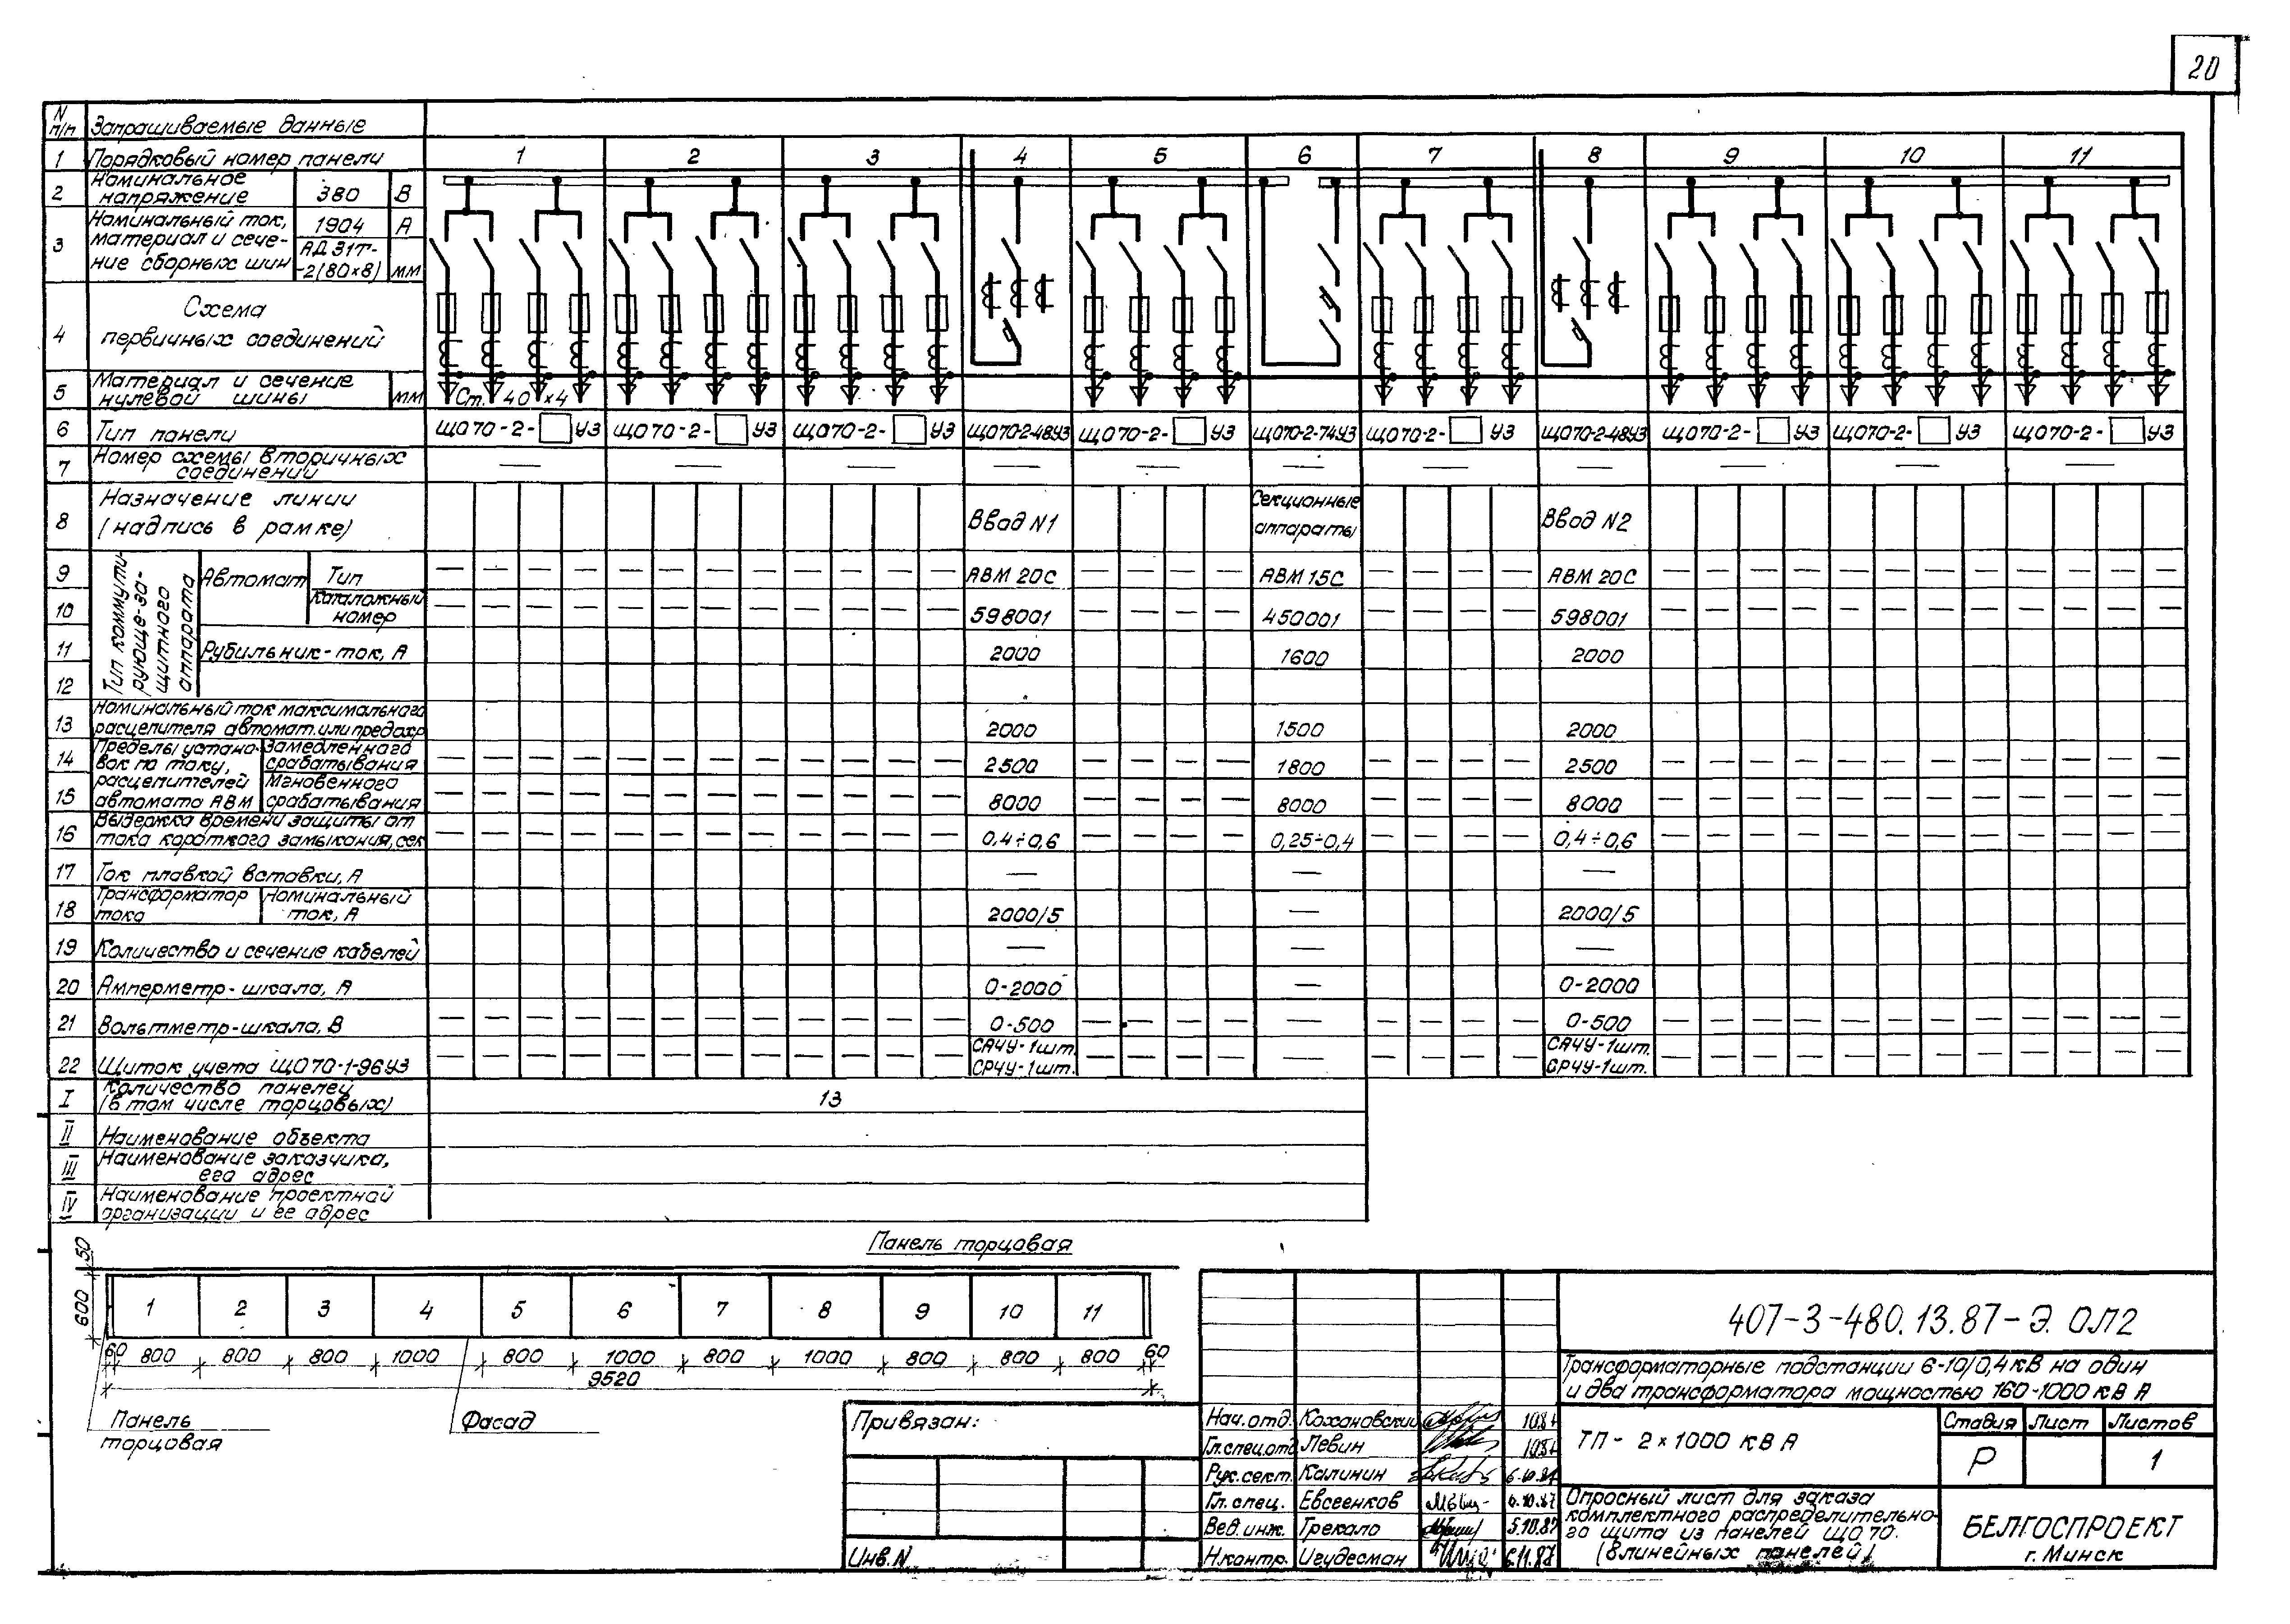 20
N п/п Запрашиваемые данные
1 Порядковый номер панели 1 2 3 4 5 6 7 8 9 10 11
2 Номинальное напряжение 380 В
3 Номинальный ток, материал и сечение сборных шин 1904 А
АД31Т-2(80×8) мм
4 Схема первичных соединений
5 Материал и сечение нулевой шины мм Ст. 40×4
6 Тип панели ЩО70-2- У3 ЩО70-2- У3 ЩО70-2- У3 ЩО70-2-48У3 ЩО70-2- У3 ЩО70-2-74У3 ЩО70-2- У3 ЩО70-2-48У3 ЩО70-2- У3 ЩО70-2- У3 ЩО70-2- У3
7 Номер схемы вторичных соединений — — — — — — — — — — —
8 Назначение линии (надпись в рамке) Ввод N1 Секционные аппараты Ввод N2
Тип коммутирующе-защитного аппарата
9 Автомат Тип АВМ 20С АВМ 15С АВМ 20С
10 Каталожный номер 598001 450001 598001
11 Рубильник-ток, А 2000 1600 2000
12
13 Номинальный ток максимального расцепителя автомат. или предохр 2000 1500 2000
Пределы установок по току, расцепителей автомата АВМ
14 Замедленного срабатывания 2500 1800 2500
15 Мгновенного срабатывания 8000 8000 8000
16 Выдержка времени защиты от тока короткого замыкания, сек 0,4÷0,6 0,25÷0,4 0,4÷0,6
17 Ток плавкой вставки, А — — —
18 Трансформатор тока Номинальный ток, А 2000/5 — 2000/5
19 Количество и сечение кабелей — — —
20 Амперметр-шкала, А 0-2000 — 0-2000
21 Вольтметр-шкала, В 0-500 — 0-500
22 Щиток учета ЩО70-1-96У3 САЧУ-1шт. СРЧУ-1шт. — САЧУ-1шт. СРЧУ-1шт.
I Количество панелей (в том числе торцовых) 13
II Наименование объекта
III Наименование заказчика, его адрес
IV Наименование проектной организации и ее адрес
Панель торцовая
50
600
1 2 3 4 5 6 7 8 9 10 11
60 800 800 800 1000 800 1000 800 1000 800 800 800 60
9520
Панель торцовая
Фасад
Привязан:
Инв.N
Нач.отд. Кохановский 10.87
Гл.спец.отд. Левин 10.87
Рук.сект. Калинин 6.10.87
Гл.спец. Евсеенков 6.10.87
Вед.инж. Трекало 5.10.87
Н.контр. Игудесман 6.11.87
407-3-480.13.87-Э.ОЛ2
Трансформаторные подстанции 6-10/0,4кВ на один
и два трансформатора мощностью 160-1000 кВА
ТП- 2×1000 кВА
Стадия Лист Листов
Р 1
Опросный лист для заказа
комплектного распределительно-
го щита из панелей ЩО70.
(8линейных панелей)
БЕЛГОСПРОЕКТ
г. Минск